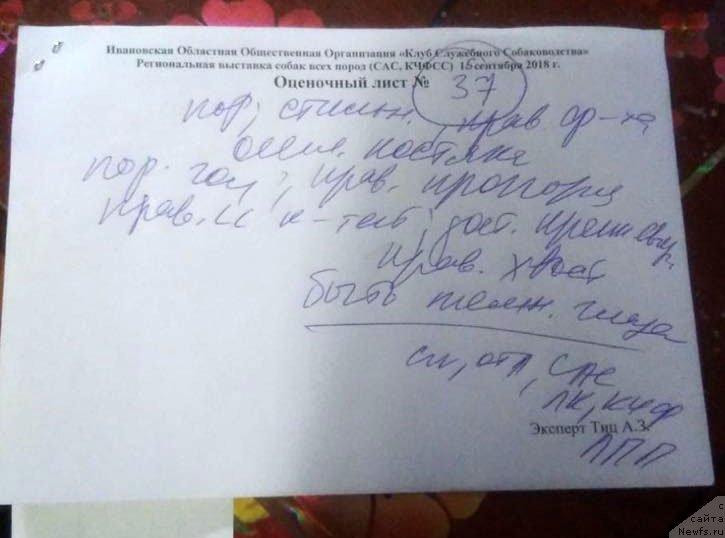 Ивановская Областная Общественная Организация «Клуб Служебного Собаководства»
Региональная выставка собак всех пород (САС, КЧФСС) 15 сентября 2018 г.
Оценочный лист № 37
пор, стильн. прав ф-ха
костяка
пор. гол; прав. пропорц
прав. к-тей; дост.
прав. хвост
быть темн. глаза
оч, отл, САС
ЛК, КЧФ
Эксперт Тиц А.З.
ЛПП
с
сайта
Newfs.ru